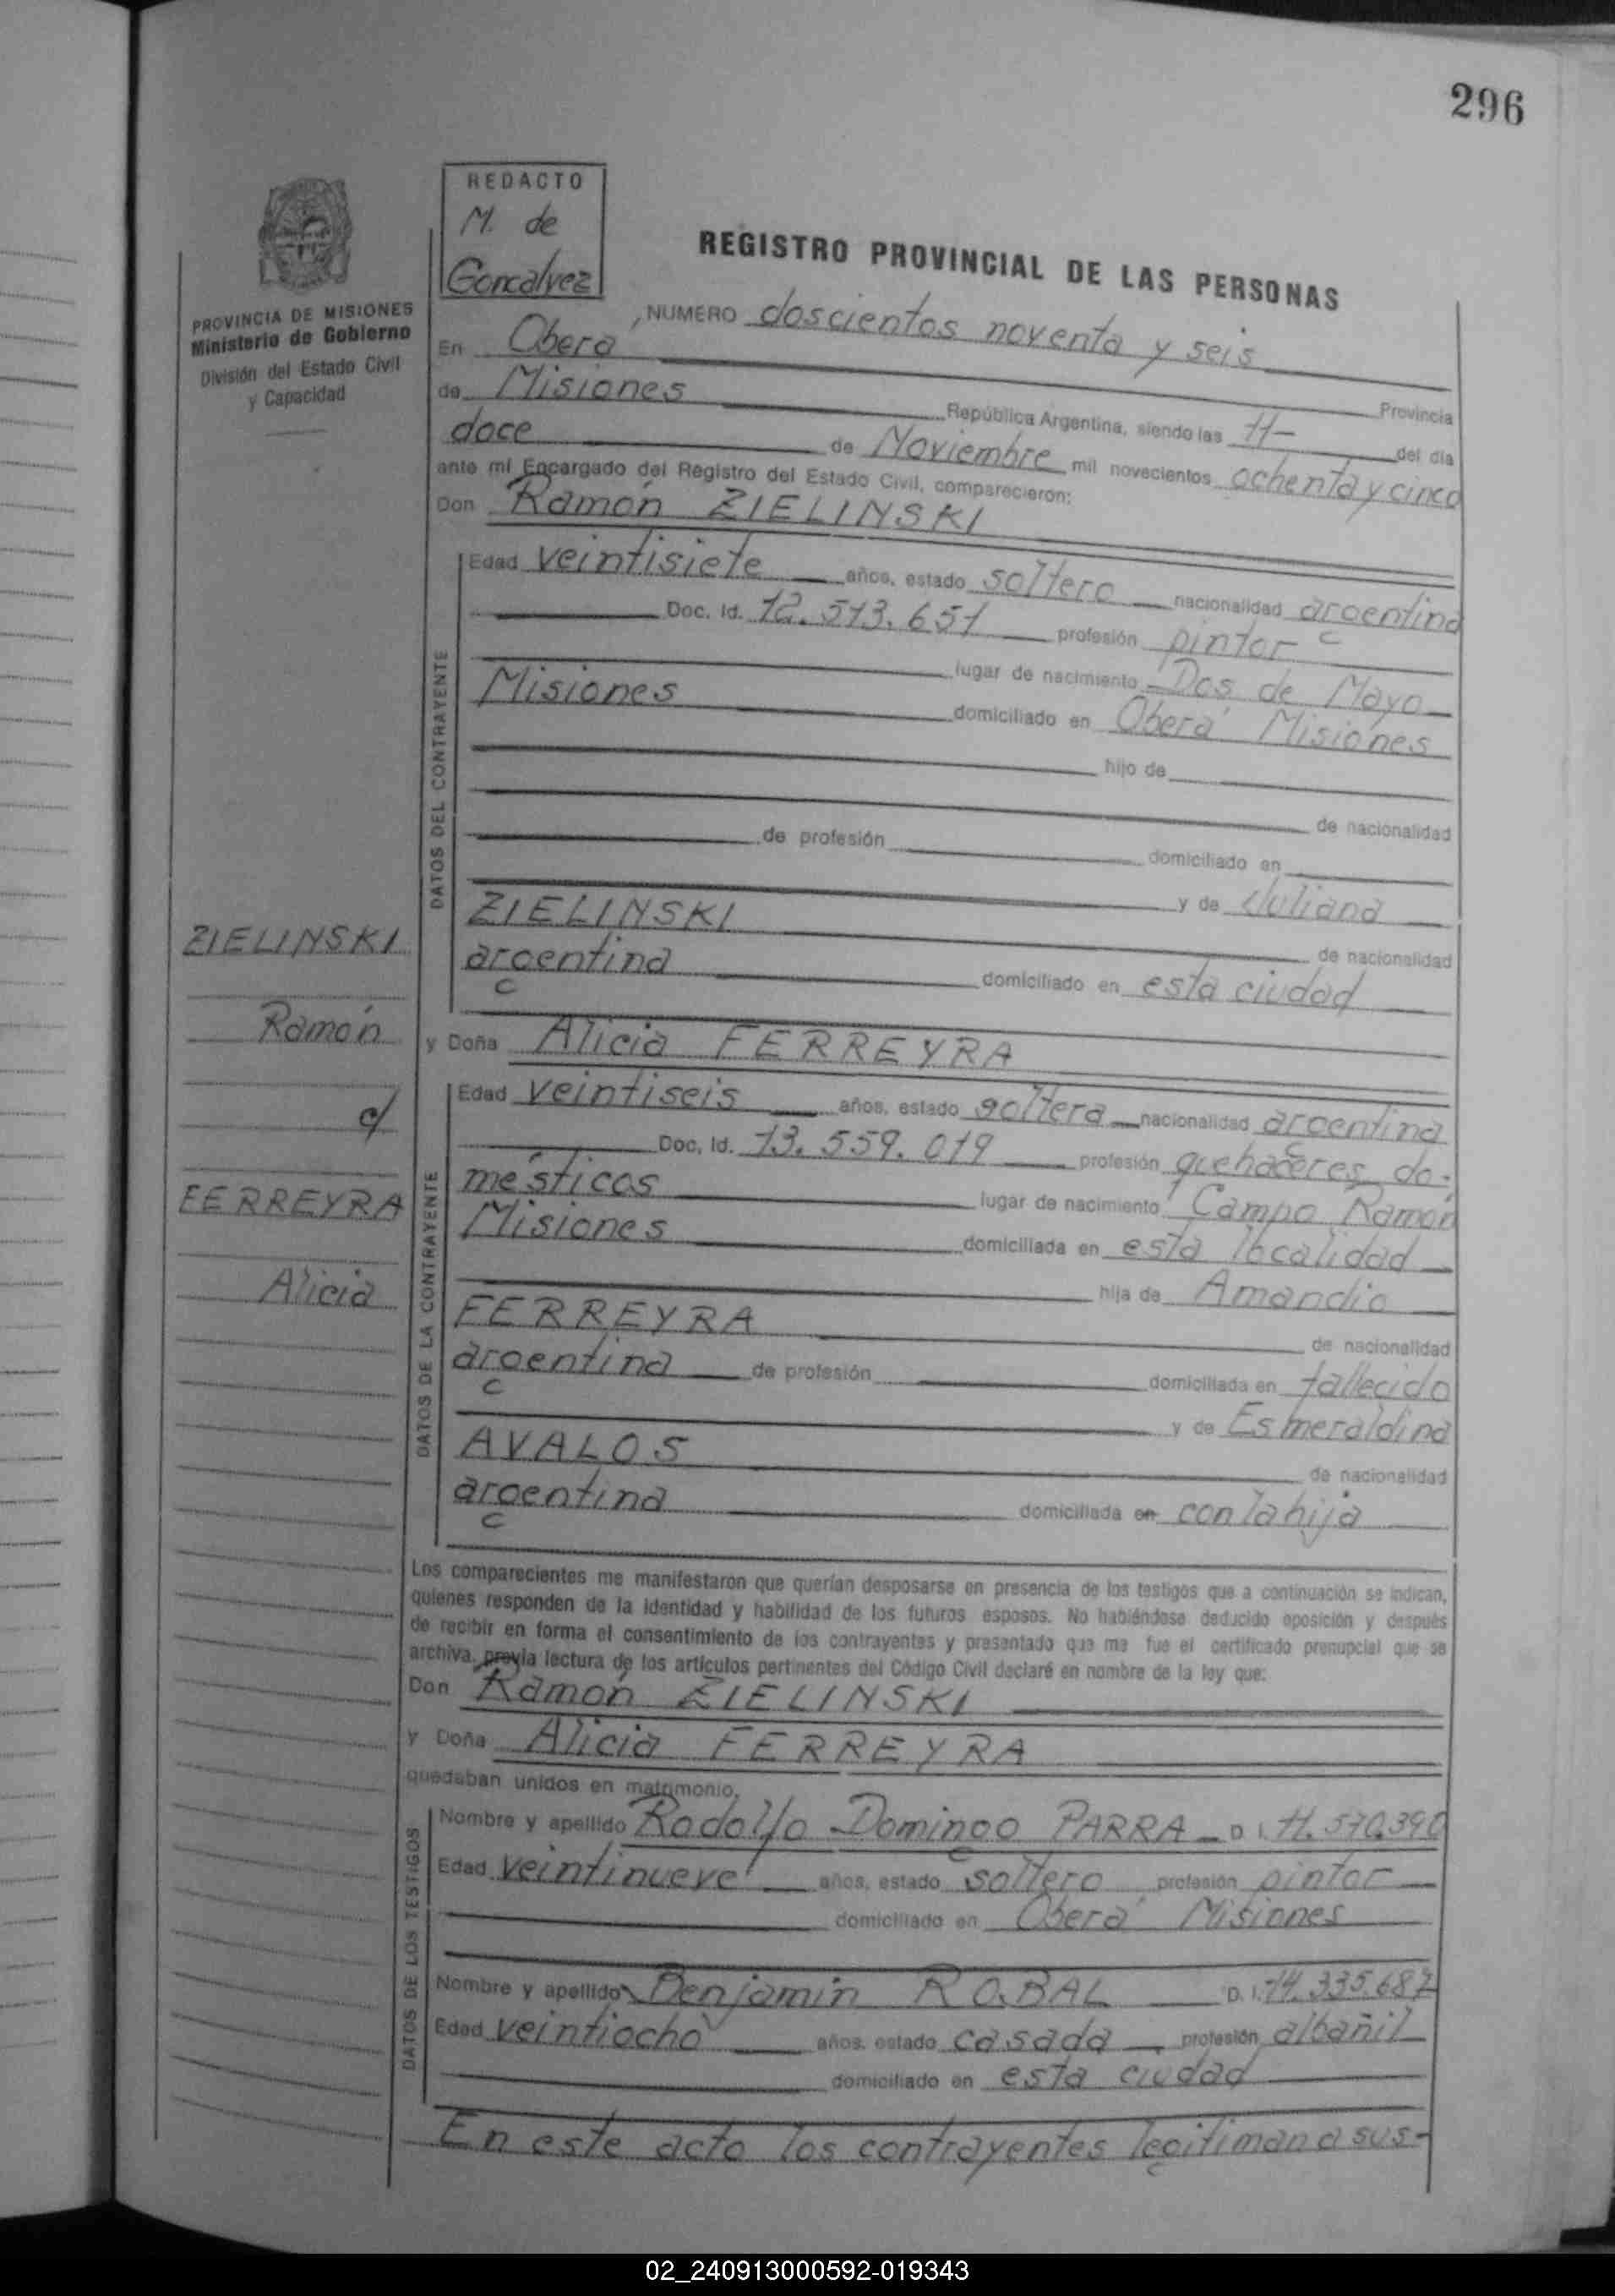 296
REDACTO
M. de
Goncalvez
PROVINCIA DE MISIONES
Ministerio de Gobierno
División del Estado Civil
y Capacidad
REGISTRO PROVINCIAL DE LAS PERSONAS
NUMERO doscientos noventa y seis
En Oberá Provincia
de Misiones República Argentina, siendo las 11- del día
doce de Noviembre mil novecientos ochenta y cinco
ante mí Encargado del Registro del Estado Civil, comparecieron:
Don Ramón ZIELINSKI
DATOS DEL CONTRAYENTE
Edad veintisiete años, estado soltero nacionalidad argentina
Doc. Id. 12.513.651 profesión pintor
lugar de nacimiento Dos de Mayo
Misiones domiciliado en Oberá Misiones
hijo de
de nacionalidad
de profesión domiciliado en
y de Juliana
ZIELINSKI de nacionalidad
argentina domiciliado en esta ciudad
ZIELINSKI
Ramón
c/
FERREYRA
Alicia
y Doña Alicia FERREYRA
DATOS DE LA CONTRAYENTE
Edad veintiseis años, estado soltera nacionalidad argentina
Doc. Id. 13.559.019 profesión quehaceres do-
mésticos lugar de nacimiento Campo Ramón
Misiones domiciliada en esta localidad
hija de Amandio
FERREYRA de nacionalidad
argentina de profesión domiciliada en fallecido
y de Esmeraldina
AVALOS de nacionalidad
argentina domiciliada en con la hija
Los comparecientes me manifestaron que querían desposarse en presencia de los testigos que a continuación se indican,
quienes responden de la identidad y habilidad de los futuros esposos. No habiéndose deducido oposición y después
de recibir en forma el consentimiento de los contrayentes y presentado que me fue el certificado prenupcial que se
archiva, previa lectura de los artículos pertinentes del Código Civil declaré en nombre de la ley que:
Don Ramón ZIELINSKI
y Doña Alicia FERREYRA
quedaban unidos en matrimonio.
DATOS DE LOS TESTIGOS
Nombre y apellido Rodolfo Domingo PARRA D.I. 11.570.390
Edad veintinueve años, estado soltero profesión pintor
domiciliado en Oberá Misiones
Nombre y apellido Benjamin ROBAL D.I. 14.335.687
Edad veintiocho años, estado casada profesión albañil
domiciliado en esta ciudad
En este acto los contrayentes legitiman a sus-
02_240913000592-019343